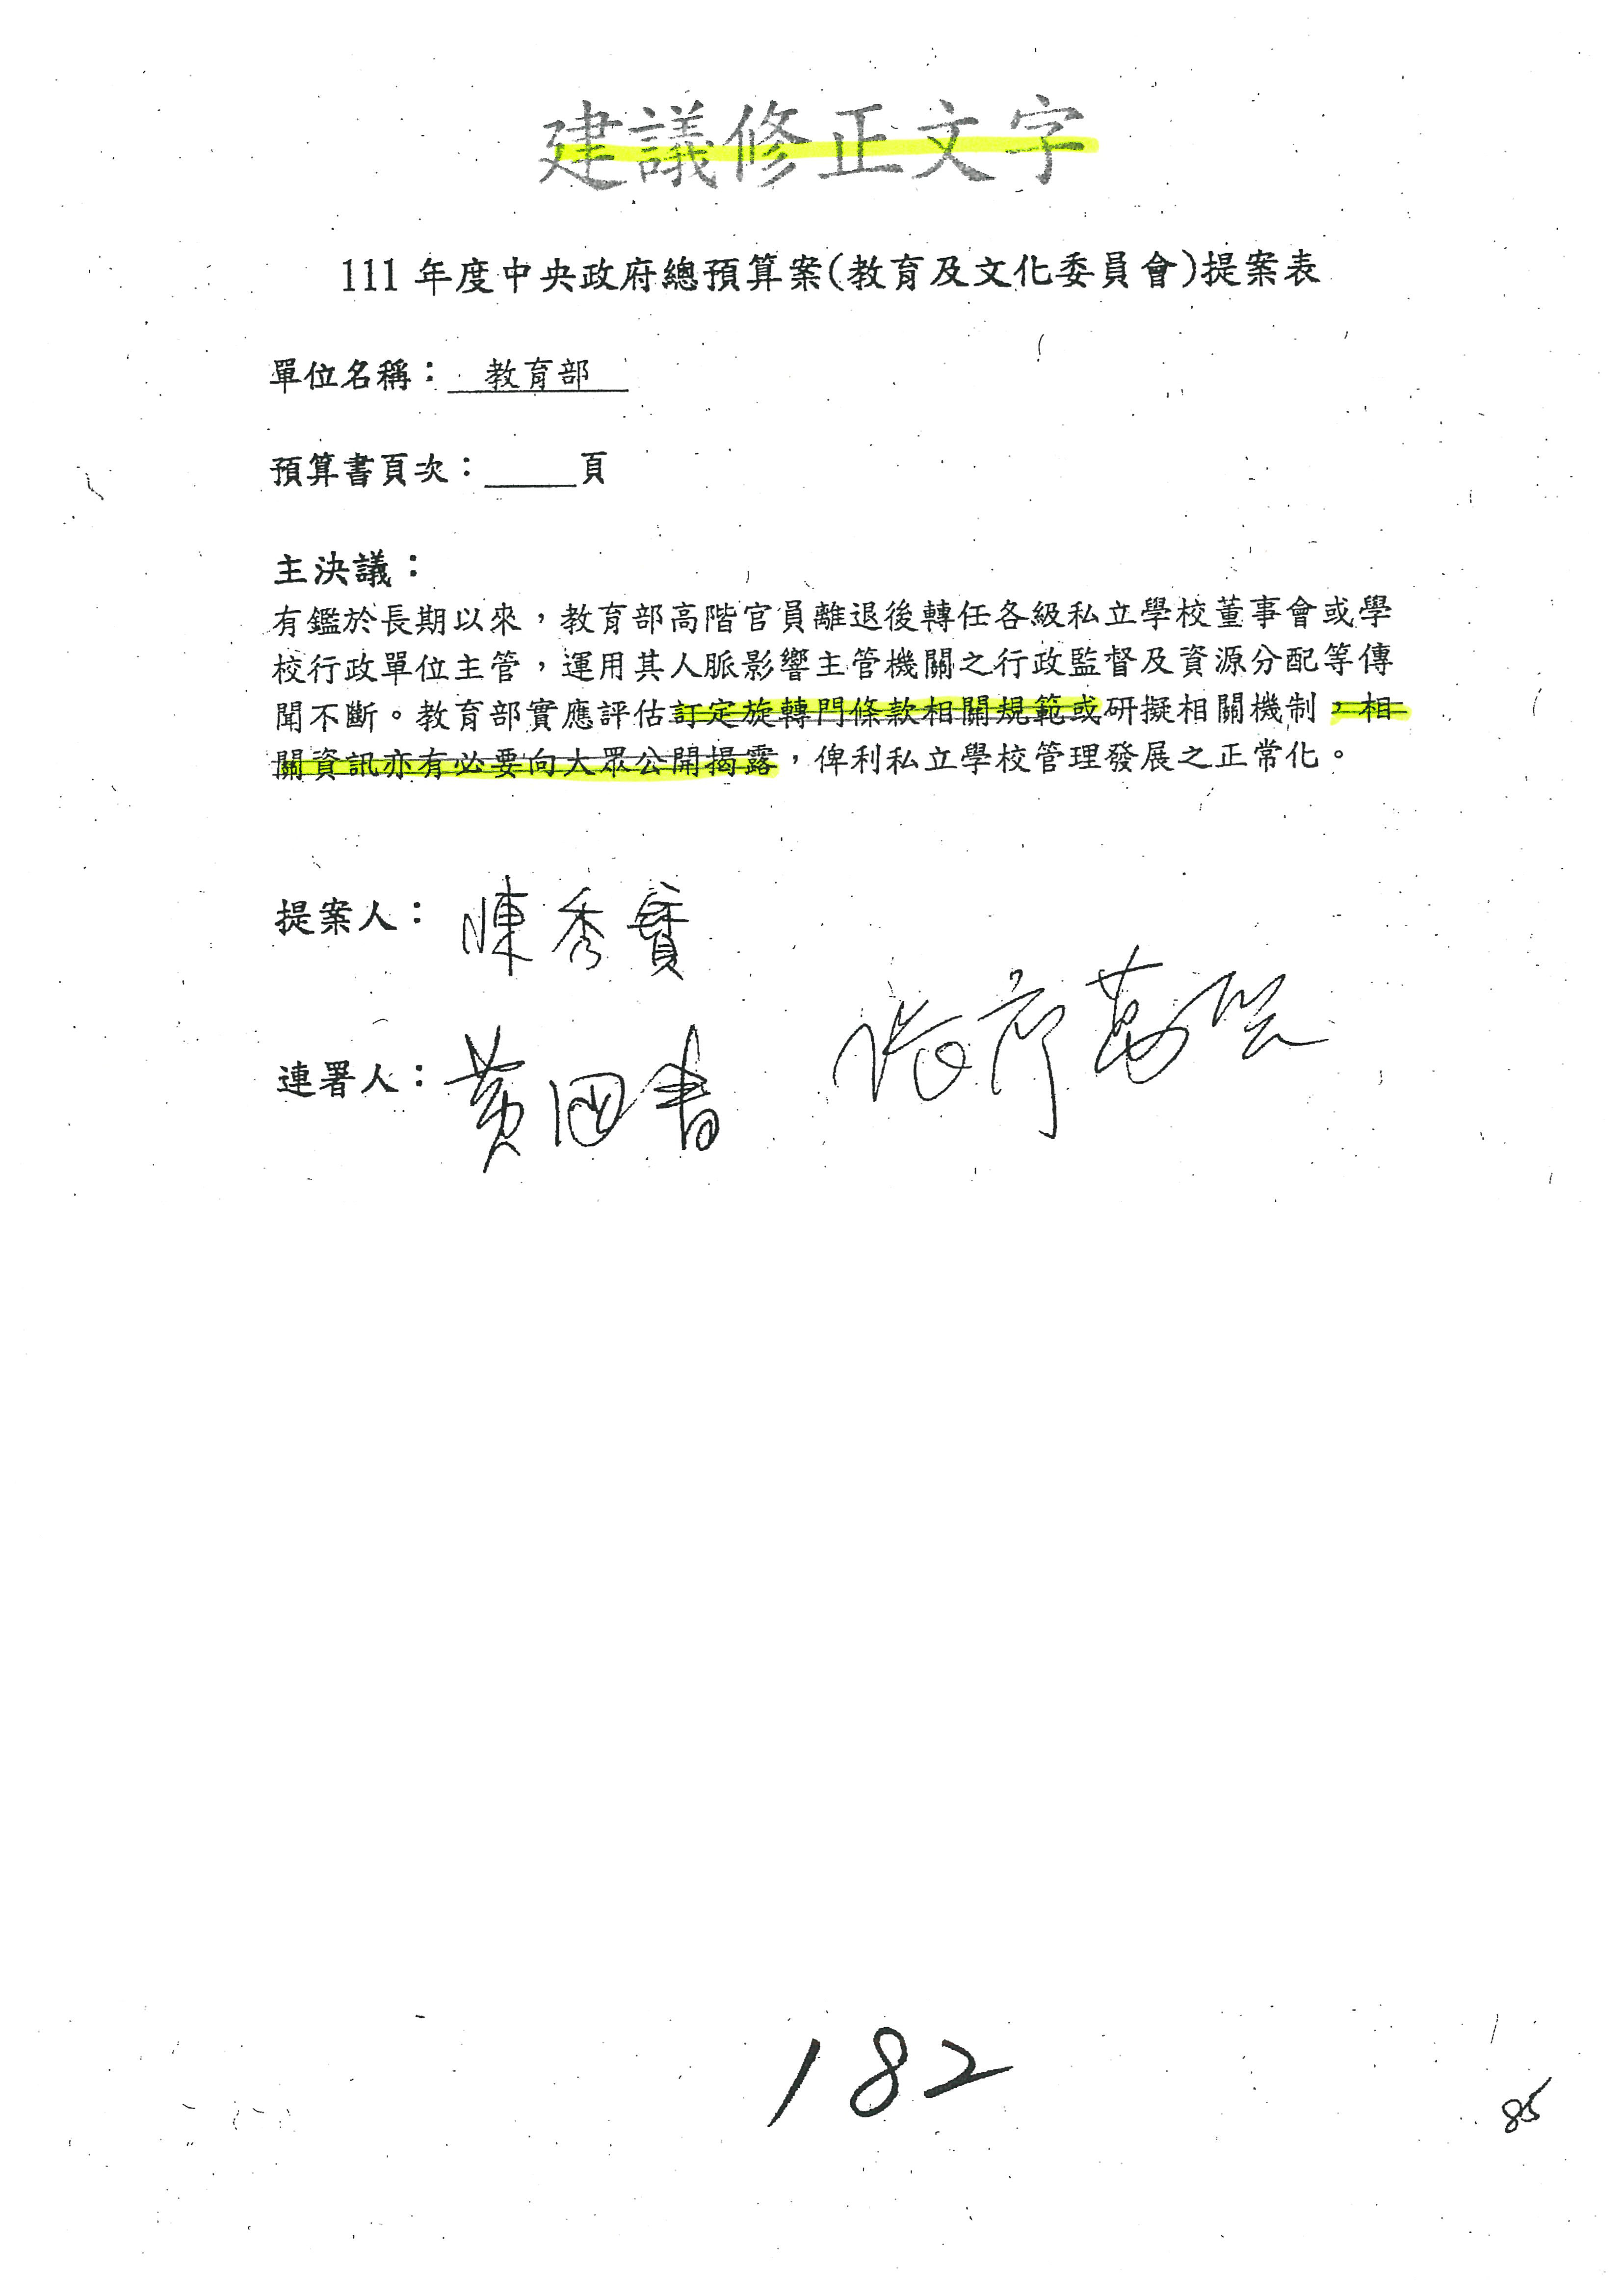 建議修正文字
111年度中央政府總預算案(教育及文化委員會)提案表
單位名稱：教育部
預算書頁次：_____頁
主決議：
有鑑於長期以來，教育部高階官員離退後轉任各級私立學校董事會或學
校行政單位主管，運用其人脈影響主管機關之行政監督及資源分配等傳
聞不斷。教育部實應評估訂定旋轉門條款相關規範或研擬相關機制，相
關資訊亦有必要向大眾公開揭露，俾利私立學校管理發展之正常化。
提案人：陳秀寳
連署人：黃國書 張廖萬堅
182
85